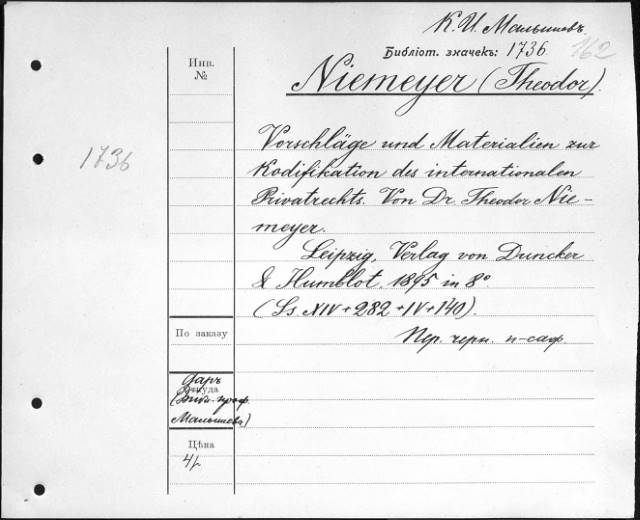 К. И. Малышевъ.
Библіот. значекъ: 1736. 162
Niemeyer (Theodor).
Инв.
№
1736
Vorschläge und Materialien zur
Kodifikation des internationalen
Privatrechts. Von Dr. Theodor Nie-
meyer.
Leipzig, Verlag von Duncker
& Humblot, 1895 in 8°
(Ss. XIV + 282 + IV + 140).
Пер. черн. п-саф.
По заказу
Даръ
Откуда
(Библ. проф.
Малышева)
Цѣна
4 р.